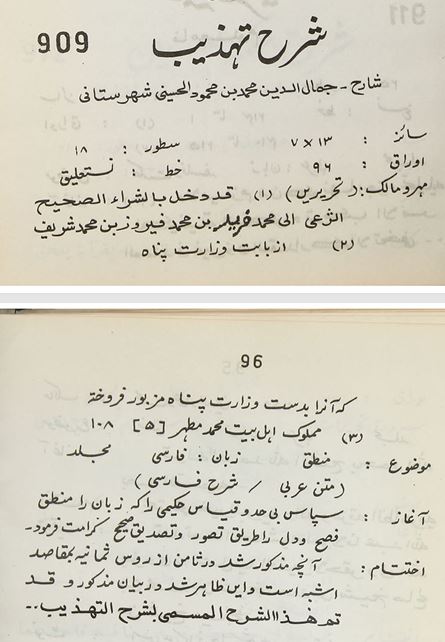 909
شرح تہذیب
شارح - جمال الدین محمد بن محمود الحسینی شهرستانی
سائز : ۱۳ × ۷ سطور : ۱۸
اوراق : ۹۶ خط : نستعلیق
مہر و مالک : ( تحریریں ) (۱) قد دخل بالشراء الصحیح
الشرعی الی محمد بن محمد فیروز بن محمد شریف
(۲) از بابت وزارت پناه
96
که آنرا بدست وزارت پناه مزبور فروخته
(۳) مملوک اہل بیت محمد مطہر [۵] ۱۰۸
موضوع : منطق زبان : فارسی مجلد
( متن عربی / شرح فارسی )
آغاز : سپاس بی حد و قیاس حکیمی را که زبان را منطق
فصیح و دل را طریق تصور و تصدیق صحیح کرامت فرمود۔
اختتام : آنچه مذکور شد در ثامن از روس ثمانیه بمقاصد
اشبه است و این ظاهر شد در بیان مذکور و قد
تم هذا الشرح المسمی بشرح التهذیب ۔۔